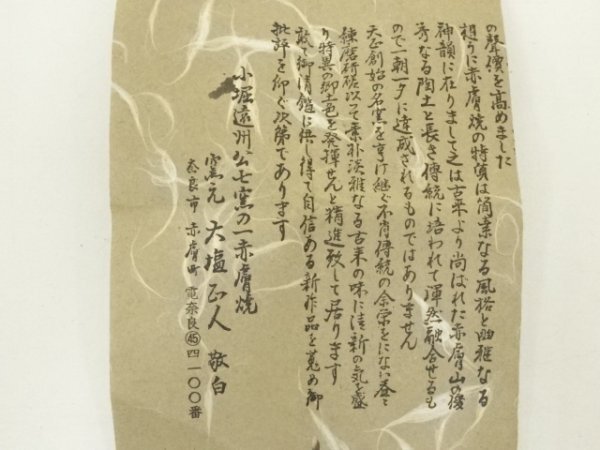 の聲價を高めました
想うに赤膚焼の特質は簡素なる風格と幽雅なる
神韻に在りまして之は古来より尚ばれた赤膚山の優
秀なる陶土と長き傳統に培われて渾然融合せるも
ので一朝一夕に達成されるものではありません
天正創始の名窯を享け継ぐ不肖傳統の余栄をにない益々
錬磨研磋以って素朴淡雅なる古来の味に清新の気を盛
り特異の郷土色を発揮せんと精進致して居ります
敢て御清鑑に供し得て自信ある新作品を蒐め御
批評を仰ぐ次第であります
小堀遠州公七窯の一赤膚焼
窯元 大塩正人 敬白
奈良市赤膚町 電奈良㊺四一〇〇番